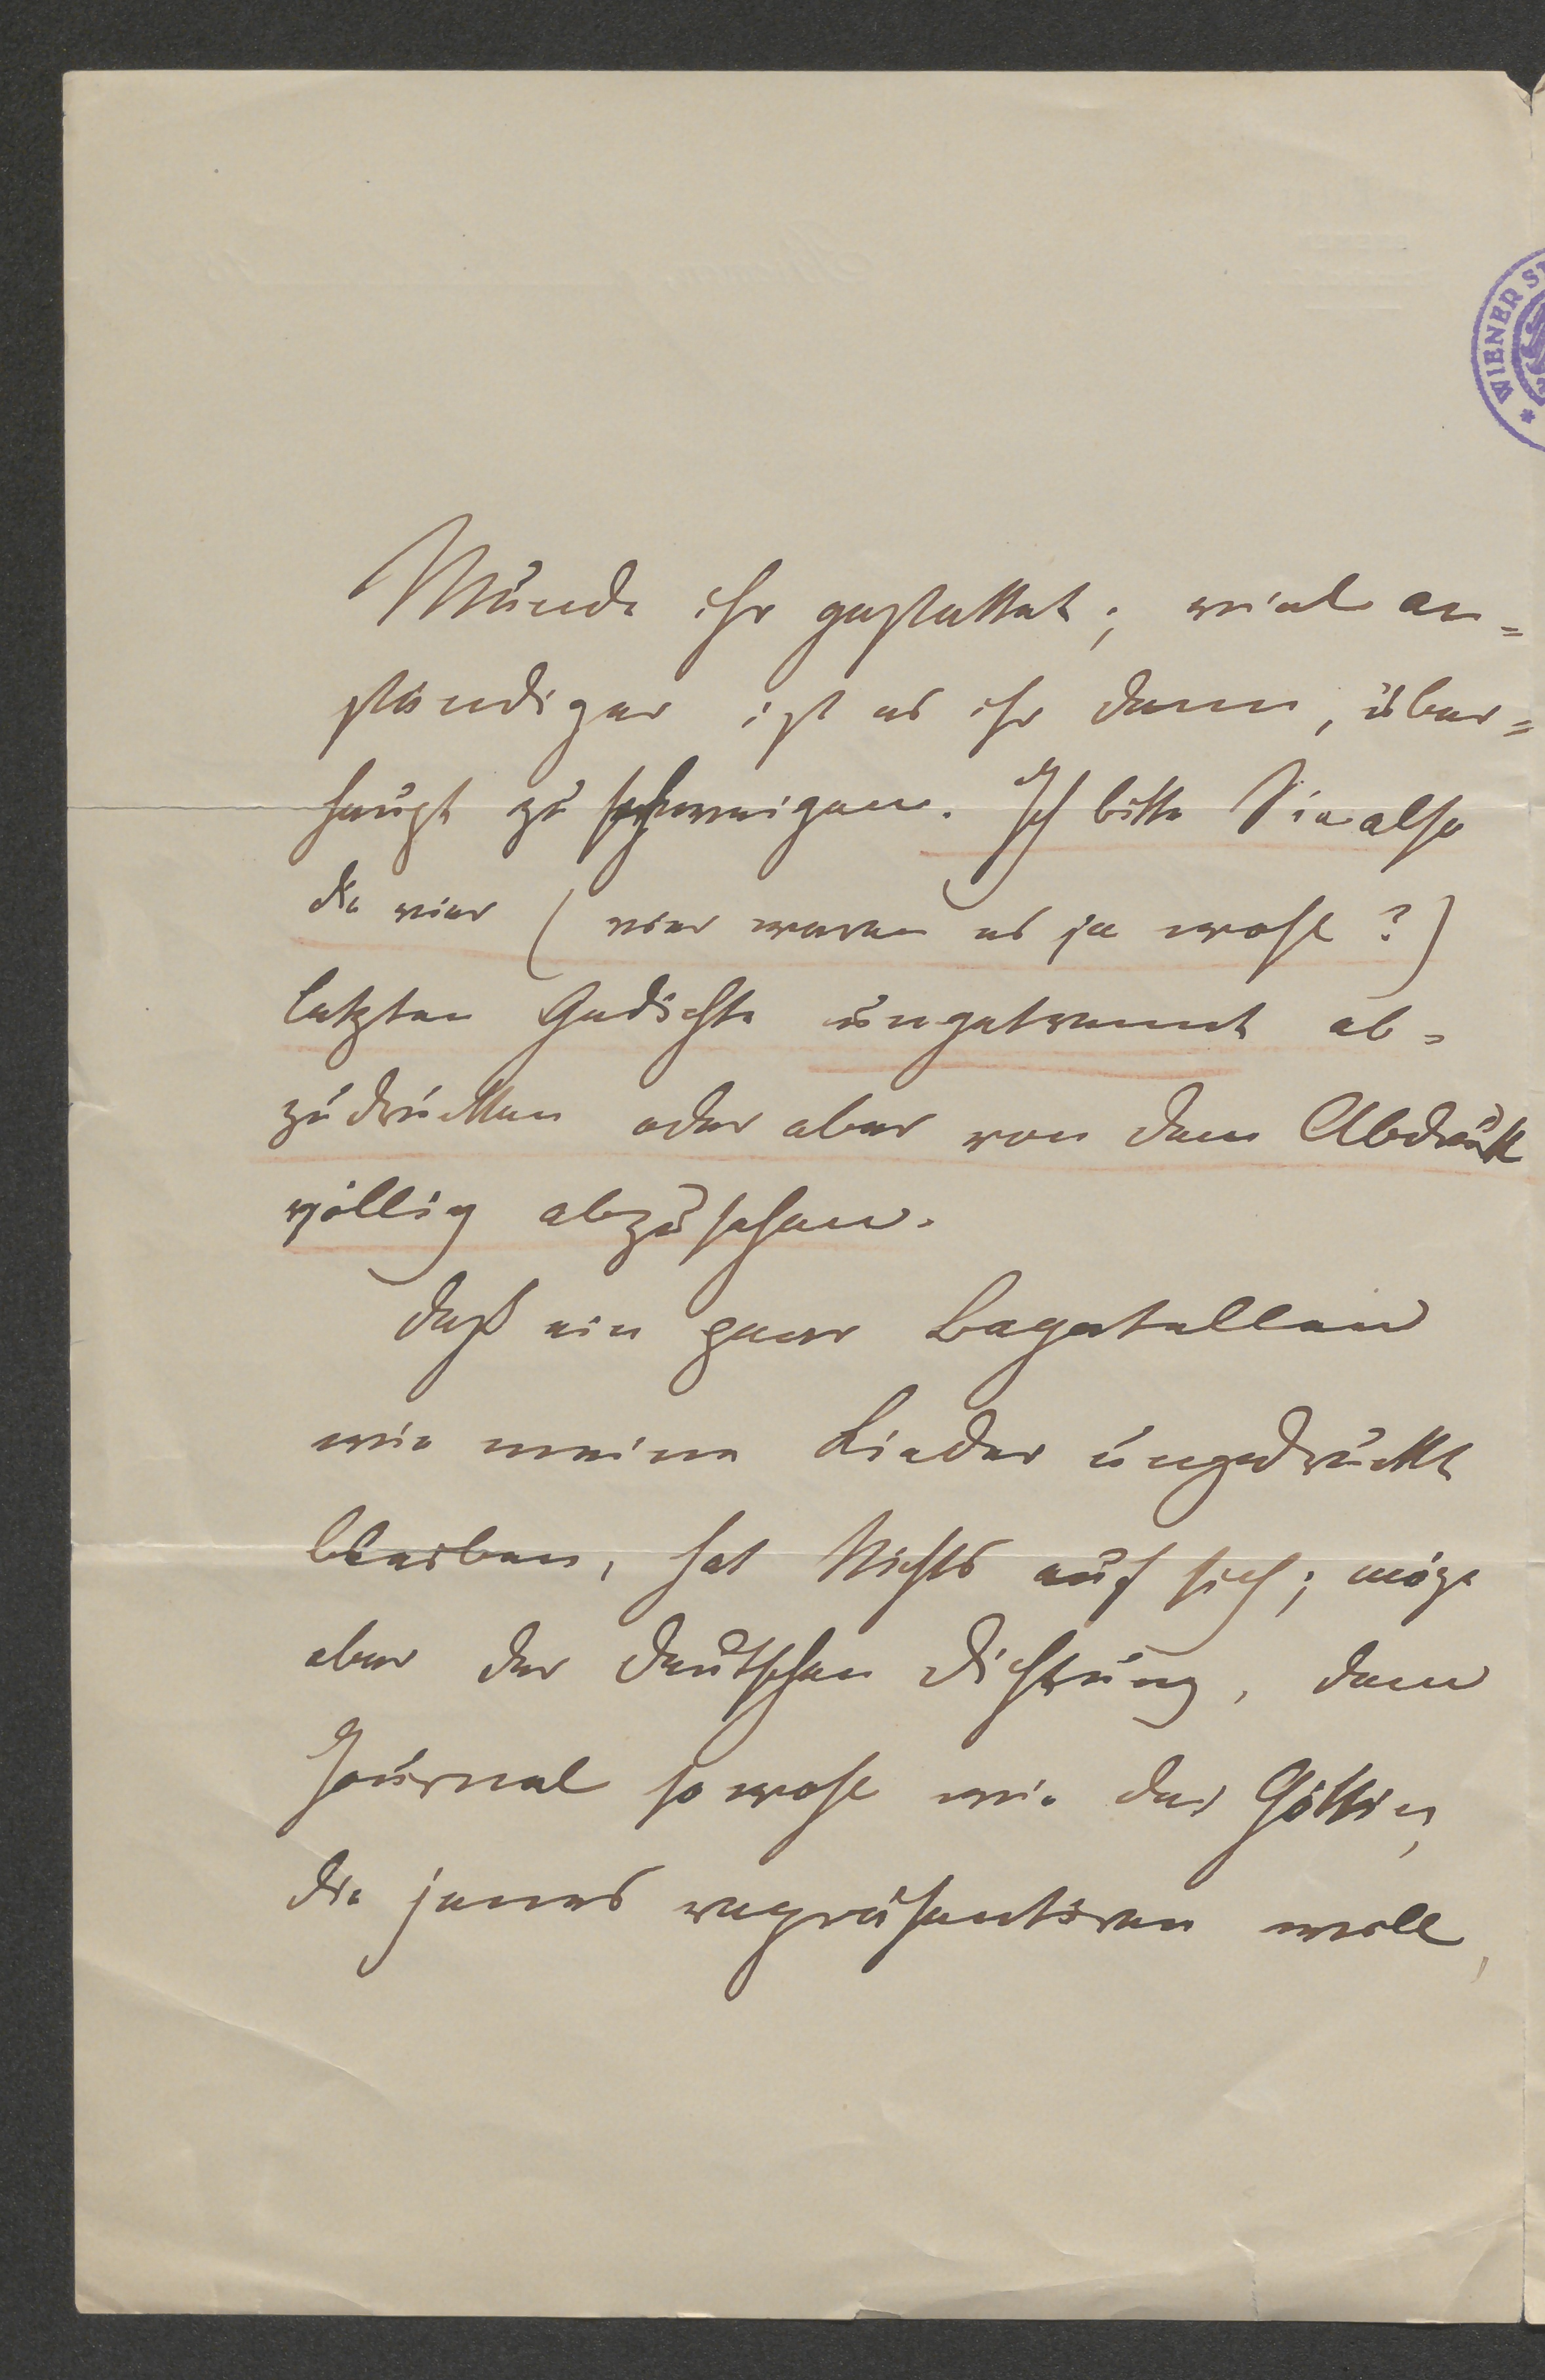 WIENER S
*
Munde ihr gestattet; viel an=
ständiger ist es ihr dann, über=
haupt zu schweigen. Ich bitte Sie also
die vier (vier waren es ja wohl?)
letzten Gedichte ungetrennt ab=
zudrucken oder aber von dem Abdruck
völlig abzusehen.
Daß ein paar Bagatellen
wie meine Lieder ungedruckt
bleiben, hat Nichts auf sich; möge
aber der deutschen Dichtung, dem
Journal sowohl wie der Göttin,
die jenes repräsentiren will,